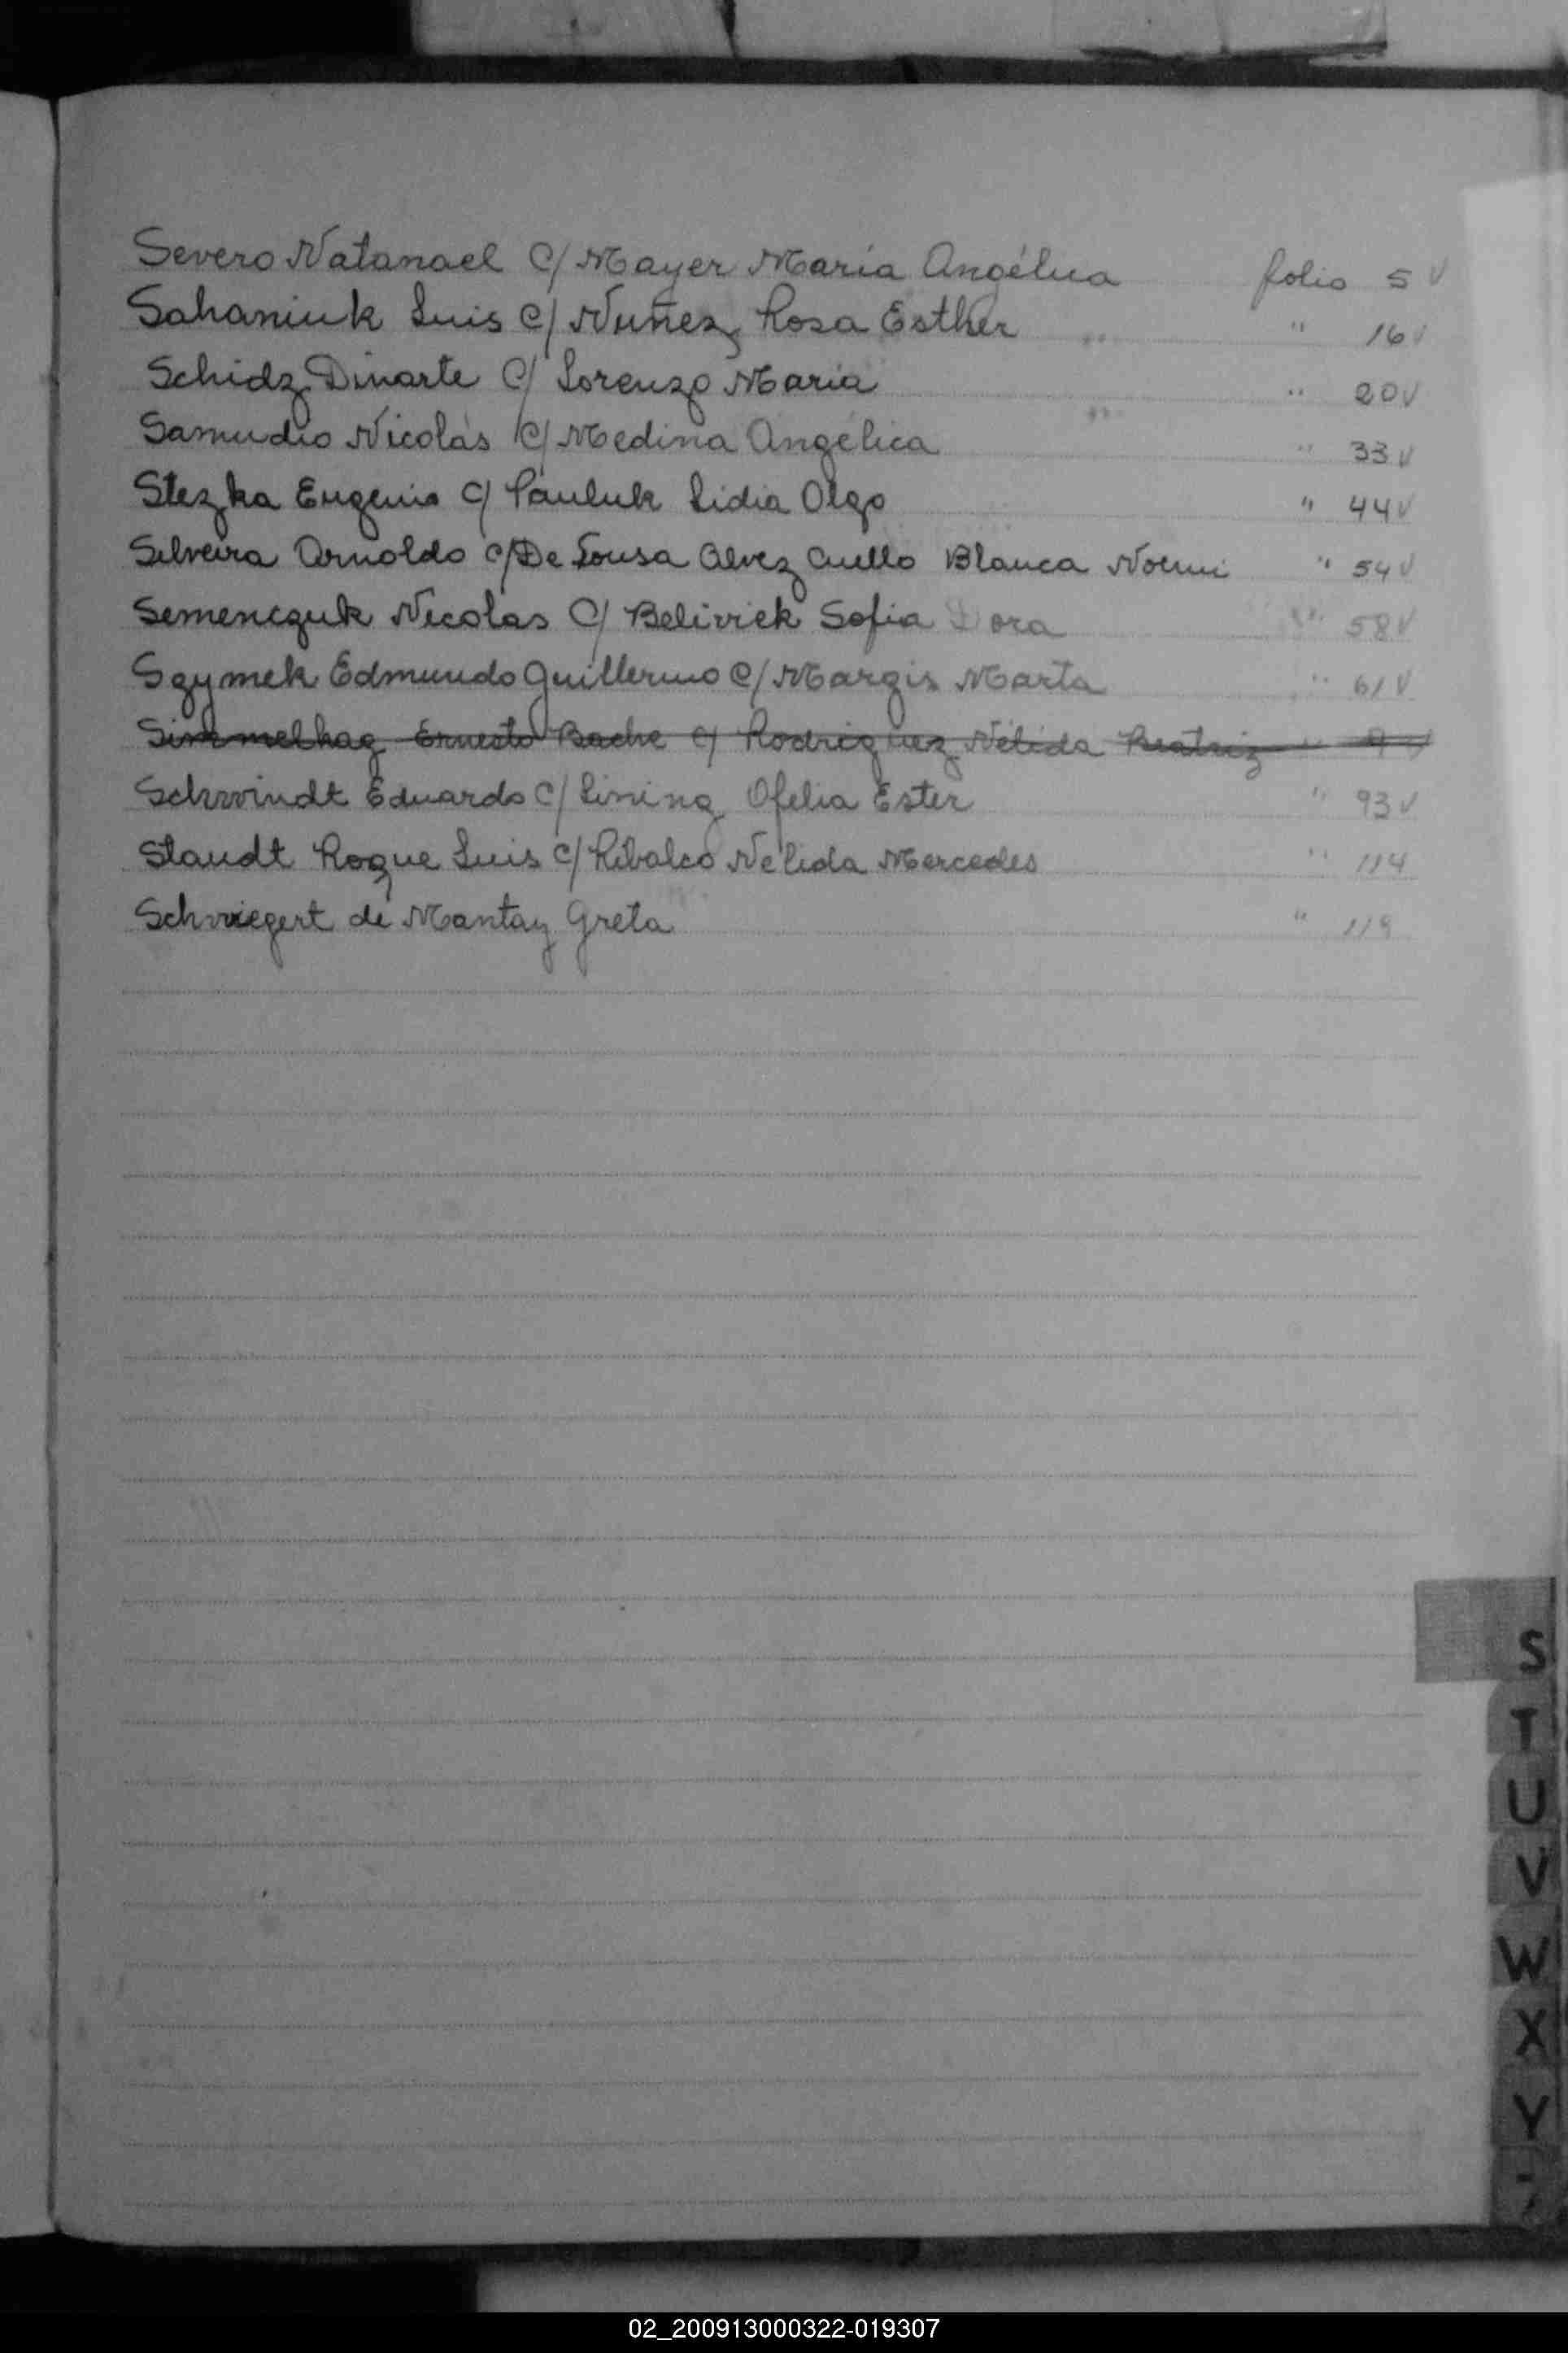 Severo Natanael C/ Mayer María Angélica folio 5 V
Sahaniuk Luis C/ Nuñez Rosa Esther " 16 V
Schidz Dinarte C/ Lorenzo María " 20 V
Samudio Nicolás C/ Medina Angélica " 33 V
Stezka Eugenio C/ Pauluk Lidia Olga " 44 V
Silveira Arnoldo C/ De Sousa Alvez Cuello Blanca Noemi " 54 V
Semenczuk Nicolas C/ Belivick Sofia Dora " 58 V
Szymek Edmundo Guillermo C/ Margis Marta " 61 V
Simmelhag Ernesto Bache C/ Rodriguez Nélida Beatriz "
Schwindt Eduardo C/ Ofelia Ester " 93 V
Staudt Roque Luis C/ Ribalco Nelida Mercedes " 114
Schwiegert de Mantay Greta " 119
S
T
U
V
W
X
Y
02_200913000322-019307